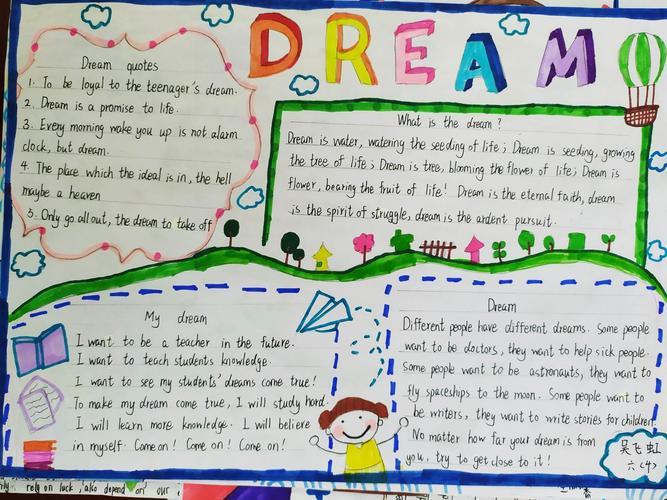 DREAM
Dream quotes
1. To be loyal to the teenager's dream.
2. Dream is a promise to life.
3. Every morning wake you up is not alarm
clock, but dream.
4. The place which the ideal is in, the hell
maybe a heaven
5. Only go all out, the dream to take off
What is the dream?
Dream is water, watering the seeding of life; Dream is seeding, growing
the tree of life; Dream is tree, blooming the flower of life; Dream is
flower, bearing the fruit of life! Dream is the eternal faith, dream
is the spirit of struggle, dream is the ardent pursuit.
My dream
I want to be a teacher in the future.
I want to teach students knowledge.
I want to see my students' dreams come true!
To make my dream come true, I will study hard.
I will learn more knowledge. I will believe
in myself. Come on! Come on! Come on!
Dream
Different people have different dreams. Some people
want to be doctors, they want to help sick people.
Some people want to be astronauts, they want to
fly spaceships to the moon. Some people want to
be writers, they want to write stories for children.
No matter how far your dream is from
you, try to get close to it!
吴飞虹
六(4)
rely on luck, also depend on our